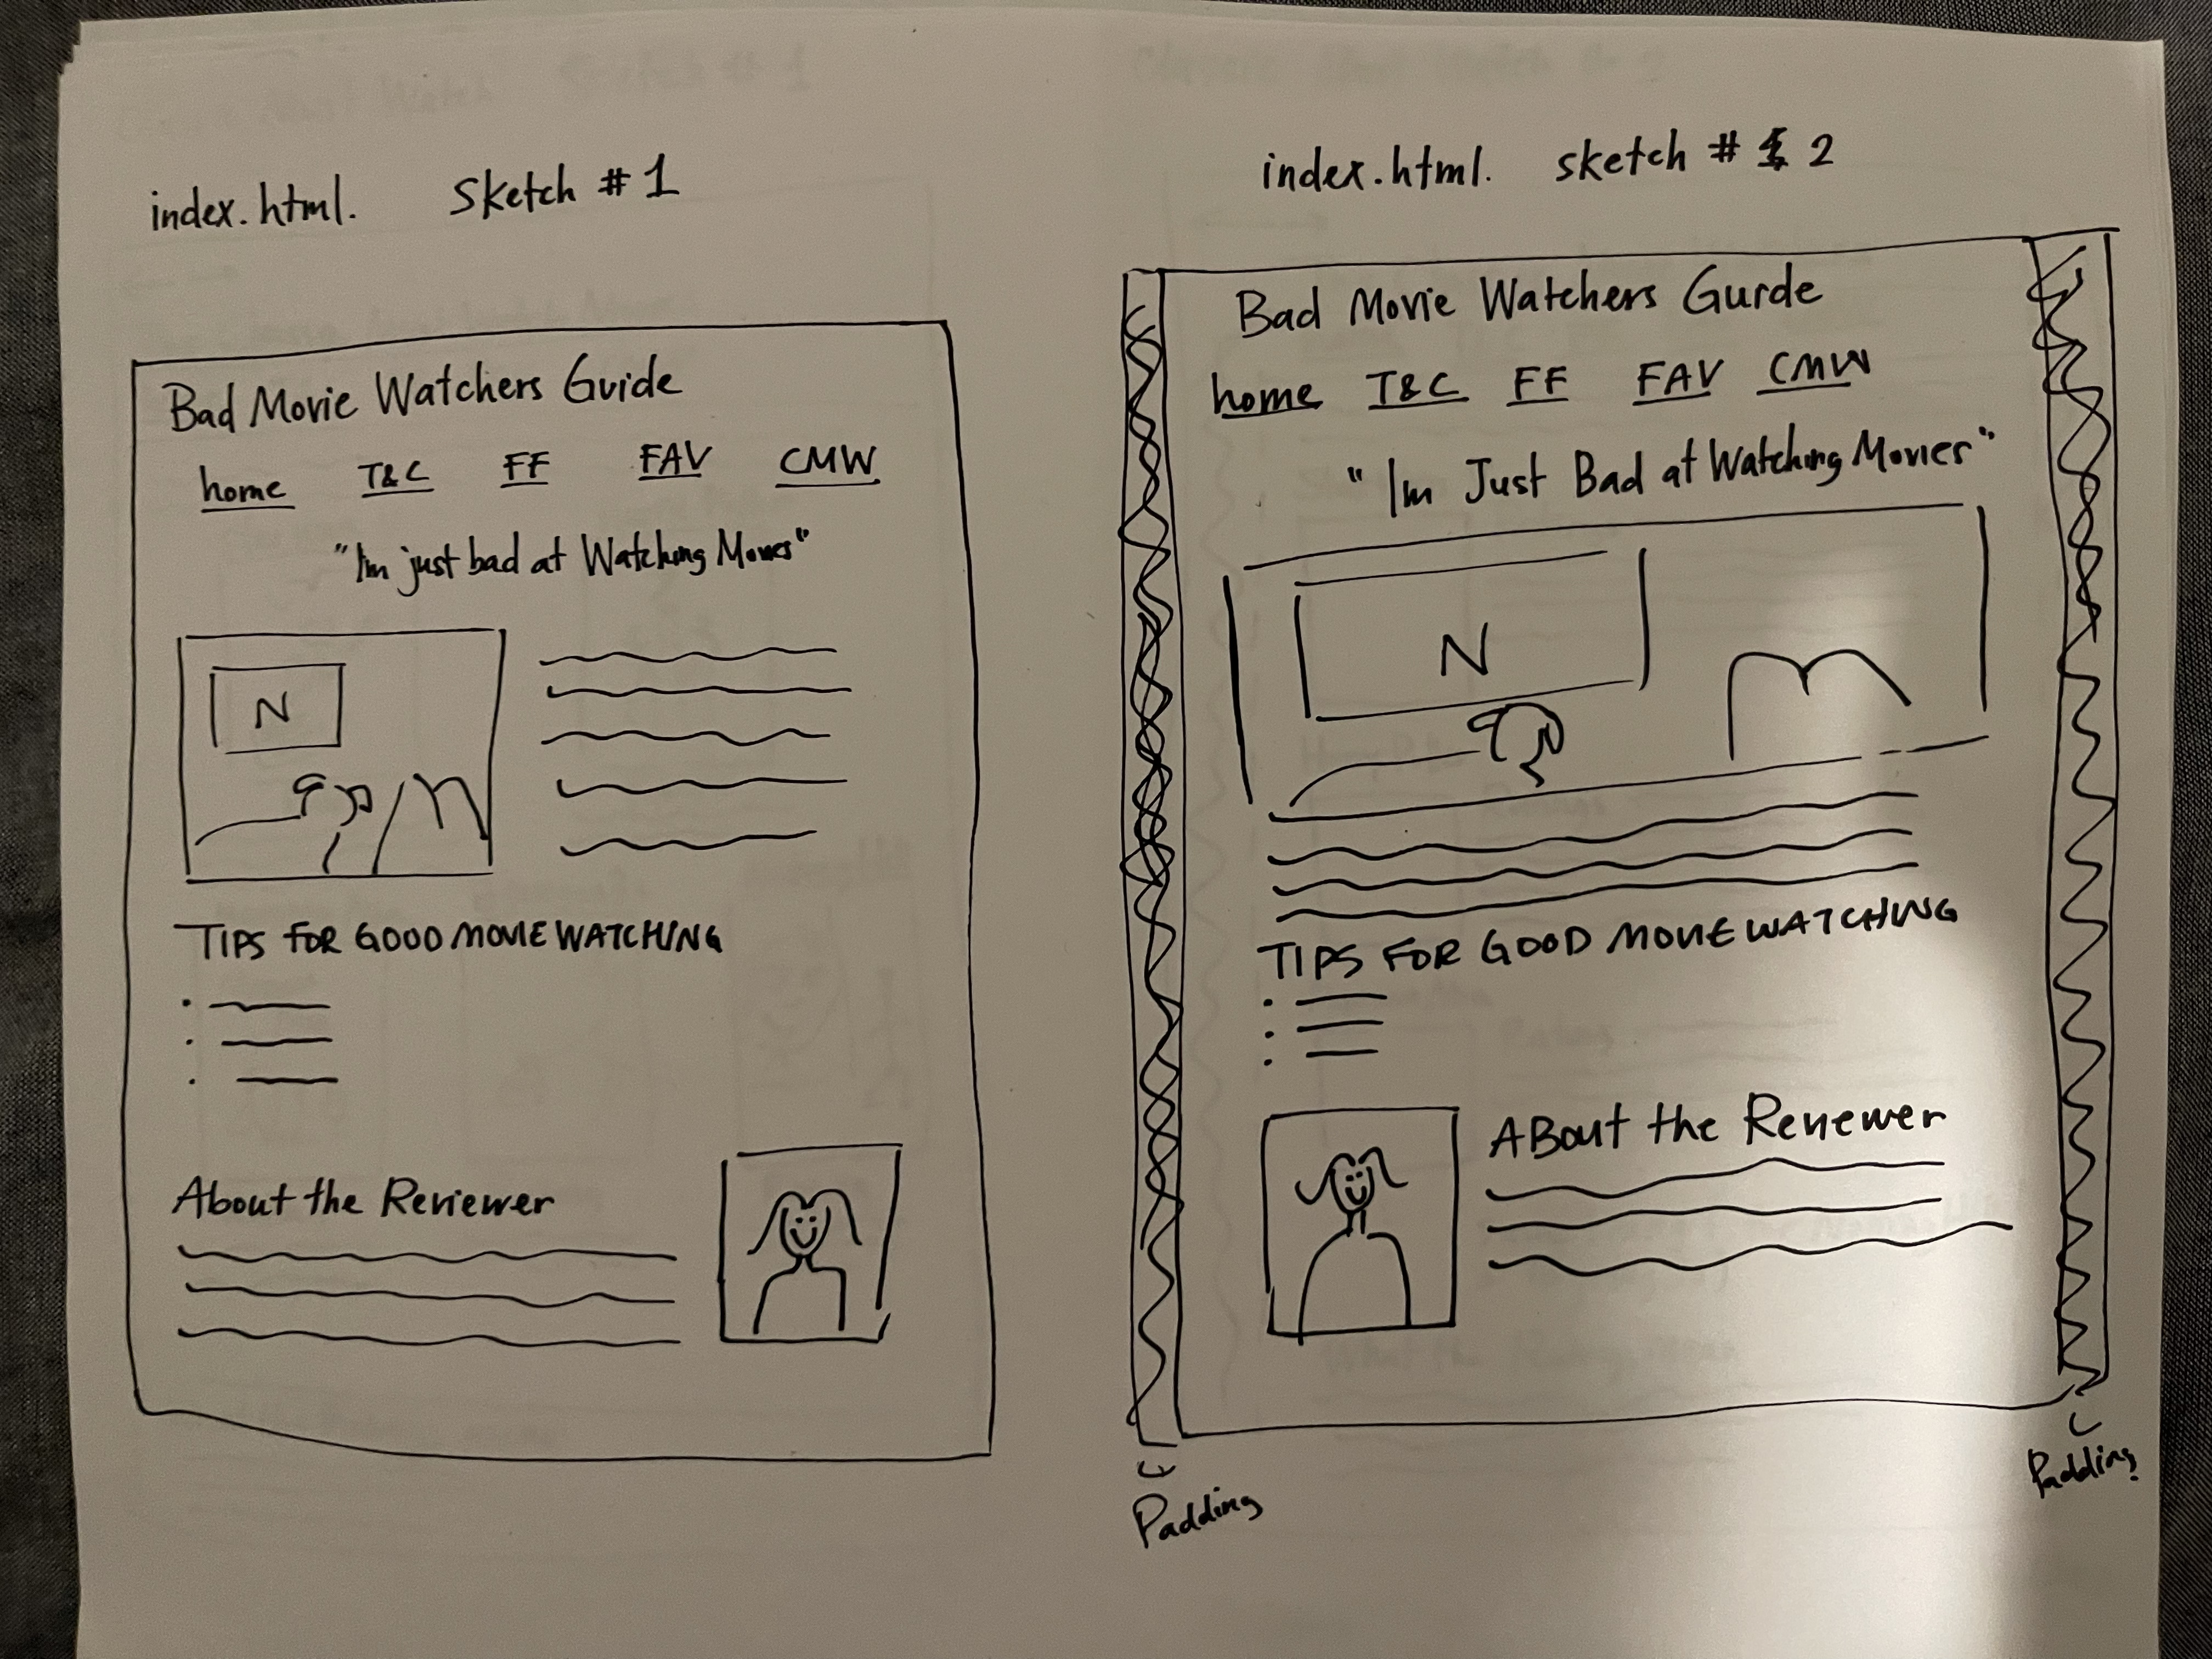 index.html. Sketch #1
Bad Movie Watchers Guide
home T&C FF FAV CMW
"Im just bad at Watching Movies"
N
TIPS FOR GOOD MOVIE WATCHING
About the Reviewer
index.html. sketch # 2
Bad Movie Watchers Guide
home T&C FF FAV CMW
"Im Just Bad at Watching Movies"
N
TIPS FOR GOOD MOVIE WATCHING
ABout the Reviewer
Padding
Padding